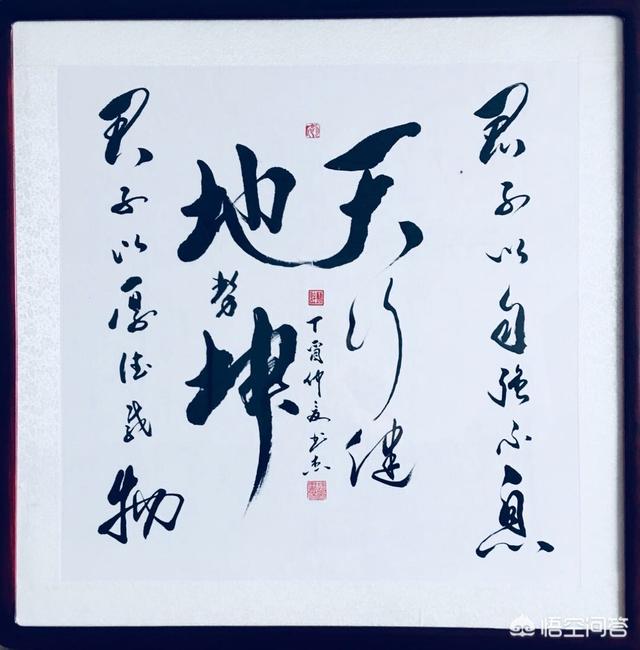 君子以自强不息
天行健
丁酉仲夏书杰
地势坤
君子以厚德载物
悟空问答